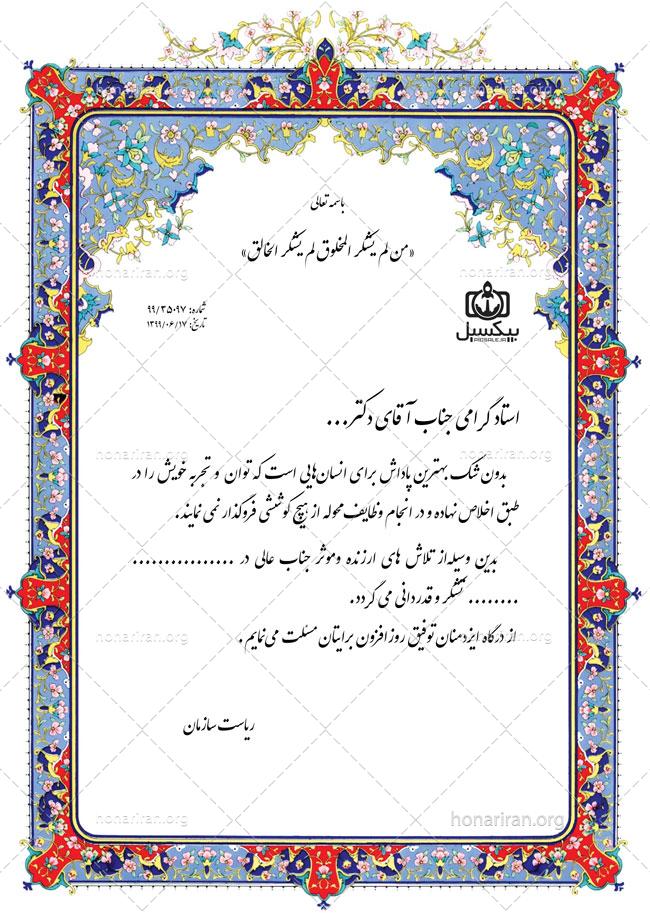 باسمه تعالی
«من لم یشکر المخلوق لم یشکر الخالق»
honariran.org honariran.org
شماره: ۹۹/۳۵۰۹۷
تاریخ: ۱۳۹۹/۰۶/۱۷
پیکسیل
PICSALE.IR
استاد گرامی جناب آقای دکتر...
honariran.org honariran.org
بدون شک بهترین پاداش برای انسان‌هایی است که توان و تجربه خویش را در
طبق اخلاص نهاده و در انجام وظایف محوله از هیچ کوششی فروگذار نمی نمایند.
بدین وسیله از تلاش های ارزنده وموثر جناب عالی در ................
........ تشکر و قدردانی می گردد.
از درگاه ایزدمنان توفیق روزافزون برایتان مسئلت می‌نمایم.
honariran.org honariran.org
ریاست سازمان
honariran.org honariran.org